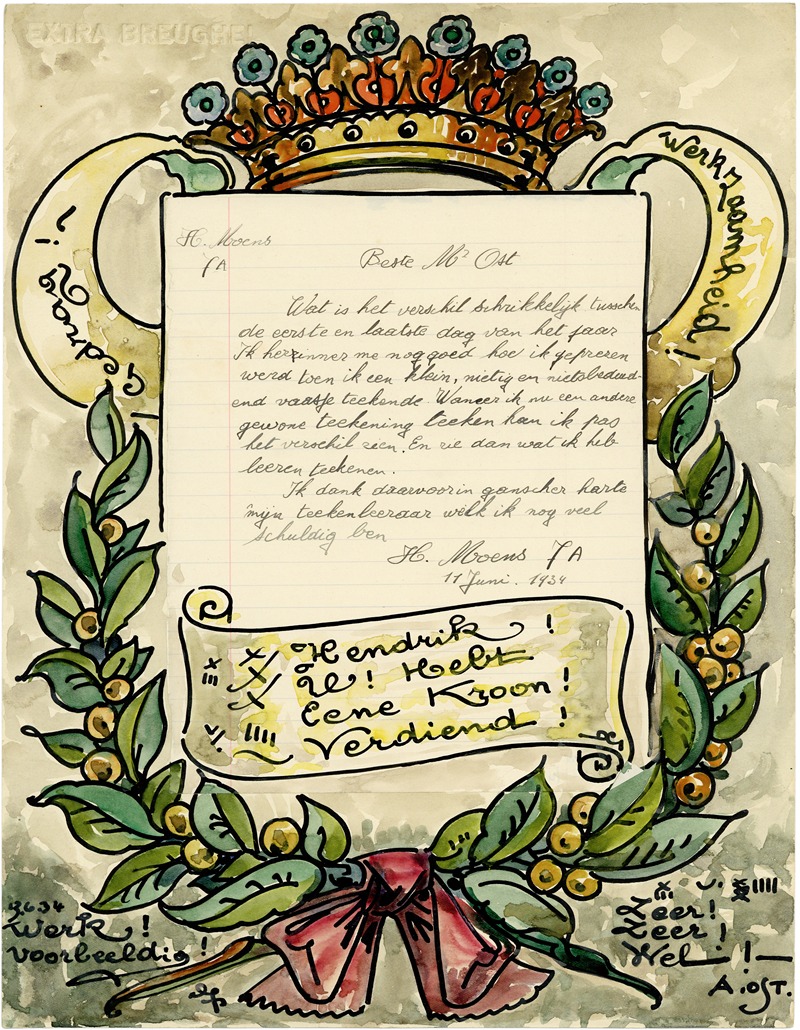 EXTRA BREUGHEL
Gedrag
Werkzaamheid!
H. Moens
7A
Beste Mr Ost
Wat is het verschil schrikkelijk tusschen
de eerste en laatste dag van het jaar
Ik herinner me nog goed hoe ik geprezen
werd toen ik een klein, nietig en nietsbeduid-
end vaasje teekende. Waneer ik nu een andere
gewone teekening teeken kan ik pas
het verschil zien. En zie dan wat ik heb
leeren teekenen.
Ik dank daarvoor in ganscher harte
mijn teekenleeraar welk ik nog veel
schuldig ben
H. Moens 7A
11 Juni. 1934
Hendrik!
U! Hebt
Eene Kroon!
Verdiend!
Werk!
voorbeeldig!
Zeer!
Zeer!
Wel!
A. OST.